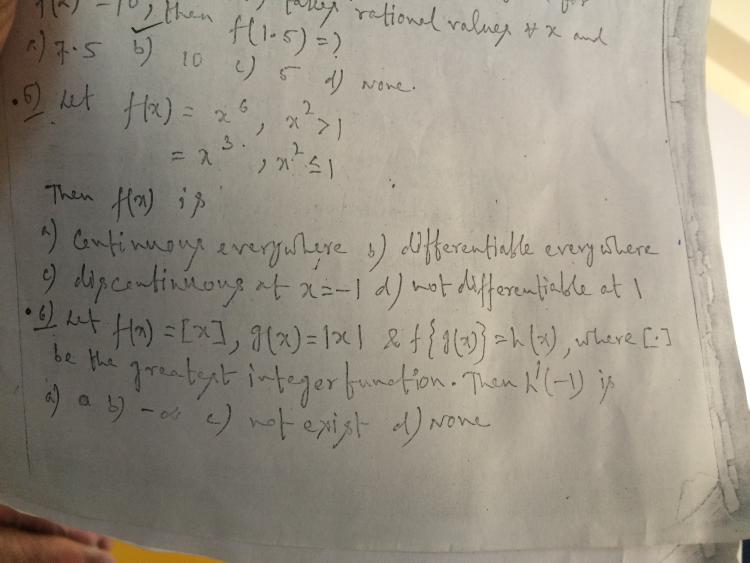 then f(x) takes rational values ∀ x and
f(1.5) = ?
a) 7.5 b) 10 c) 5 d) none.
5) Let f(x) = x⁶, x² > 1
= x³, x² ≤ 1
Then f(x) is
a) Continuous everywhere b) differentiable everywhere
c) discontinuous at x = -1 d) not differentiable at 1
6) Let f(x) = [x], g(x) = |x| & f{g(x)} = h(x), where [.]
be the greatest integer function. Then h'(-1) is
a) b) -∞ c) not exist d) None